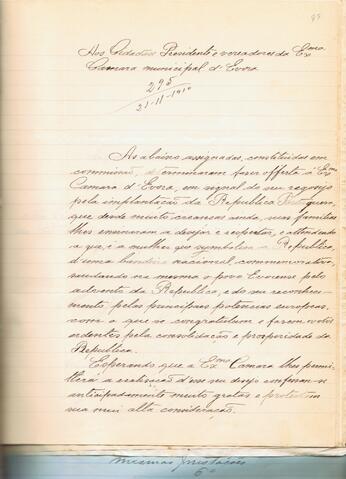 Aos Cidadãos Presidente e vereadores da Exma
Camara municipal d'Evora
295
21-11-1910
As abaixo assignadas, constituidas em
commissão, determinaram fazer offerta á Exma
Camara d'Evora, em signal do seu regosijo
pela implantação da Republica Portugueza,
que desde muito creanças ainda, suas familias
lhes ensinaram a desejar e respeitar, e attendendo
a que é a mulher que symbolisa a Republica
d'uma bandeira nacional commemorativa,
saudando na mesma o povo Eborense pelo
advento da Republica, e do seu reconheci-
mento pelas principaes potencias europeas,
com o que se congratulam e fazem votos
ardentes pela consolidação e prosperidade da
Republica.
Esperando que a Exma Camara lhes permit-
tirá a realisação d'esse seu desejo confessam-se
anticipadamente muito gratas e protestam
sua mui alta consideração.
6º